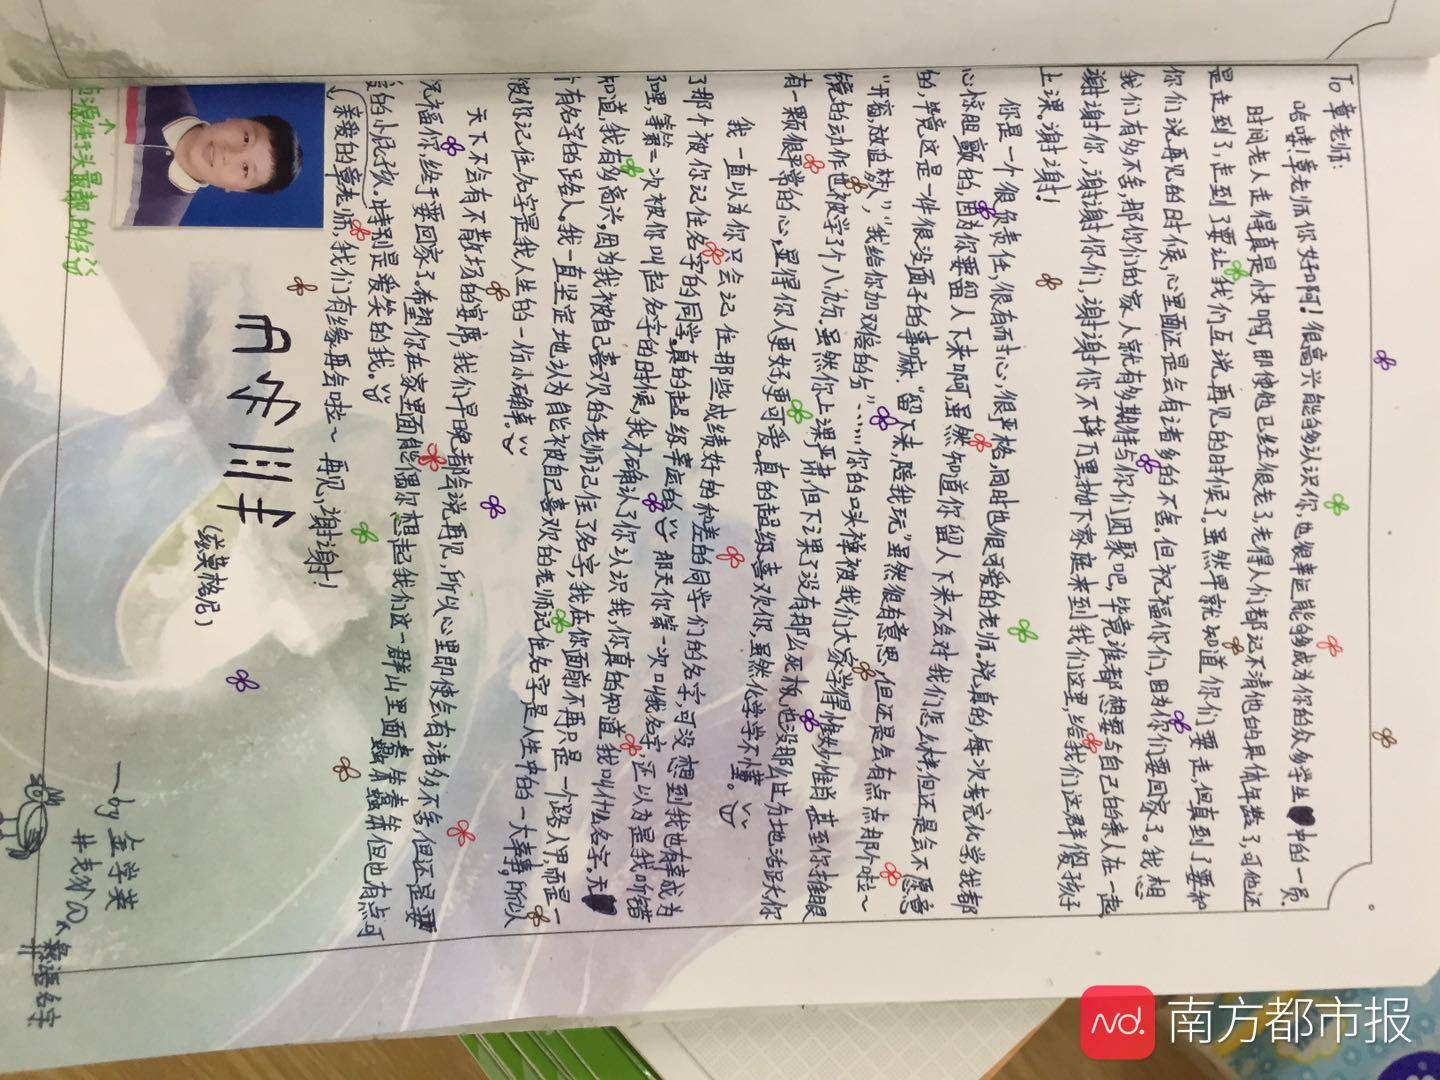 To 章老师:
哈喽!章老师你好啊!很高兴能够认识你,也很幸运能够成为你的众多学生中的一员
时间老人走得真是快啊,即使他已经很老了,老得人们都记不清他的具体年数了,可他还
是走到了,走到了要让我们互说再见的时候了。虽然早就知道你们要走,但真到了要和
你们说再见的时候,心里面还是会有诸多的不舍。但祝福你们,因为你们要回家了。我想
我们有多不舍,那你们的家人就有多期待与你们团聚吧,毕竟谁都想要与自己的亲人在一起
谢谢你,谢谢你们,谢谢你不辞万里抛下家庭来到我们这里,给我们这群傻孩子
上课。谢谢!
你是一个很负责任,很有耐心,很严格,同时也很可爱的老师,说真的,每次考完化学我都
心惊胆颤的,因为你要留人下来啊,虽然知道你留人下来不会对我们怎么样,但还是会不愿意
的,毕竟这是一件很没面子的事嘛。"留下来,陪我玩"虽然很有意思,但还是会有点点那个啦~
"开窗,放迫","我给你加双倍的分"……你的口头禅被我们大家学得惟妙惟肖,甚至你推眼
镜的动作也被学了个八九分。虽然你上课严肃,但下了课没有那么死板,也没那么
有一颗很平常的心,显得你人更好,更可爱。真的超级喜欢你,虽然化学学不懂。
我一直以为你只会记住那些成绩好的和差的同学们的名字,可没想到我也有幸成为
了那个被你记住名字的同学。真的超级幸庭的 那天你第一次叫我名字,还以为是我听错
了哩,等第二次被你叫起名字的时候,我才确认了你认识我,你真的知道我叫什么名字。
知道,我有多高兴,因为我被自己喜欢的老师记住了名字,我在你面前不再只是一个路人甲,而是一
个有名字的路人。我一直坚定地认为自能被自己喜欢的老师记住名字是人生中的一大幸事,所以
被你记住名字是我人生的一份小确幸。
天下不会有不散场的宴席,我们早晚都会说再见,所以心里即使会有诸多不舍,但还是要
祝福你,终于要回家了。希望你在家里面能偶尔想起我们这一群山里面 但也有点可
爱的小屁孩,特别是爱笑的我。
亲爱的章老师,我们有缘再会啦~ 再见,谢谢!
(絨莫格尼)
—by 金学英
彝语名字
头最靓的仔
南方都市报